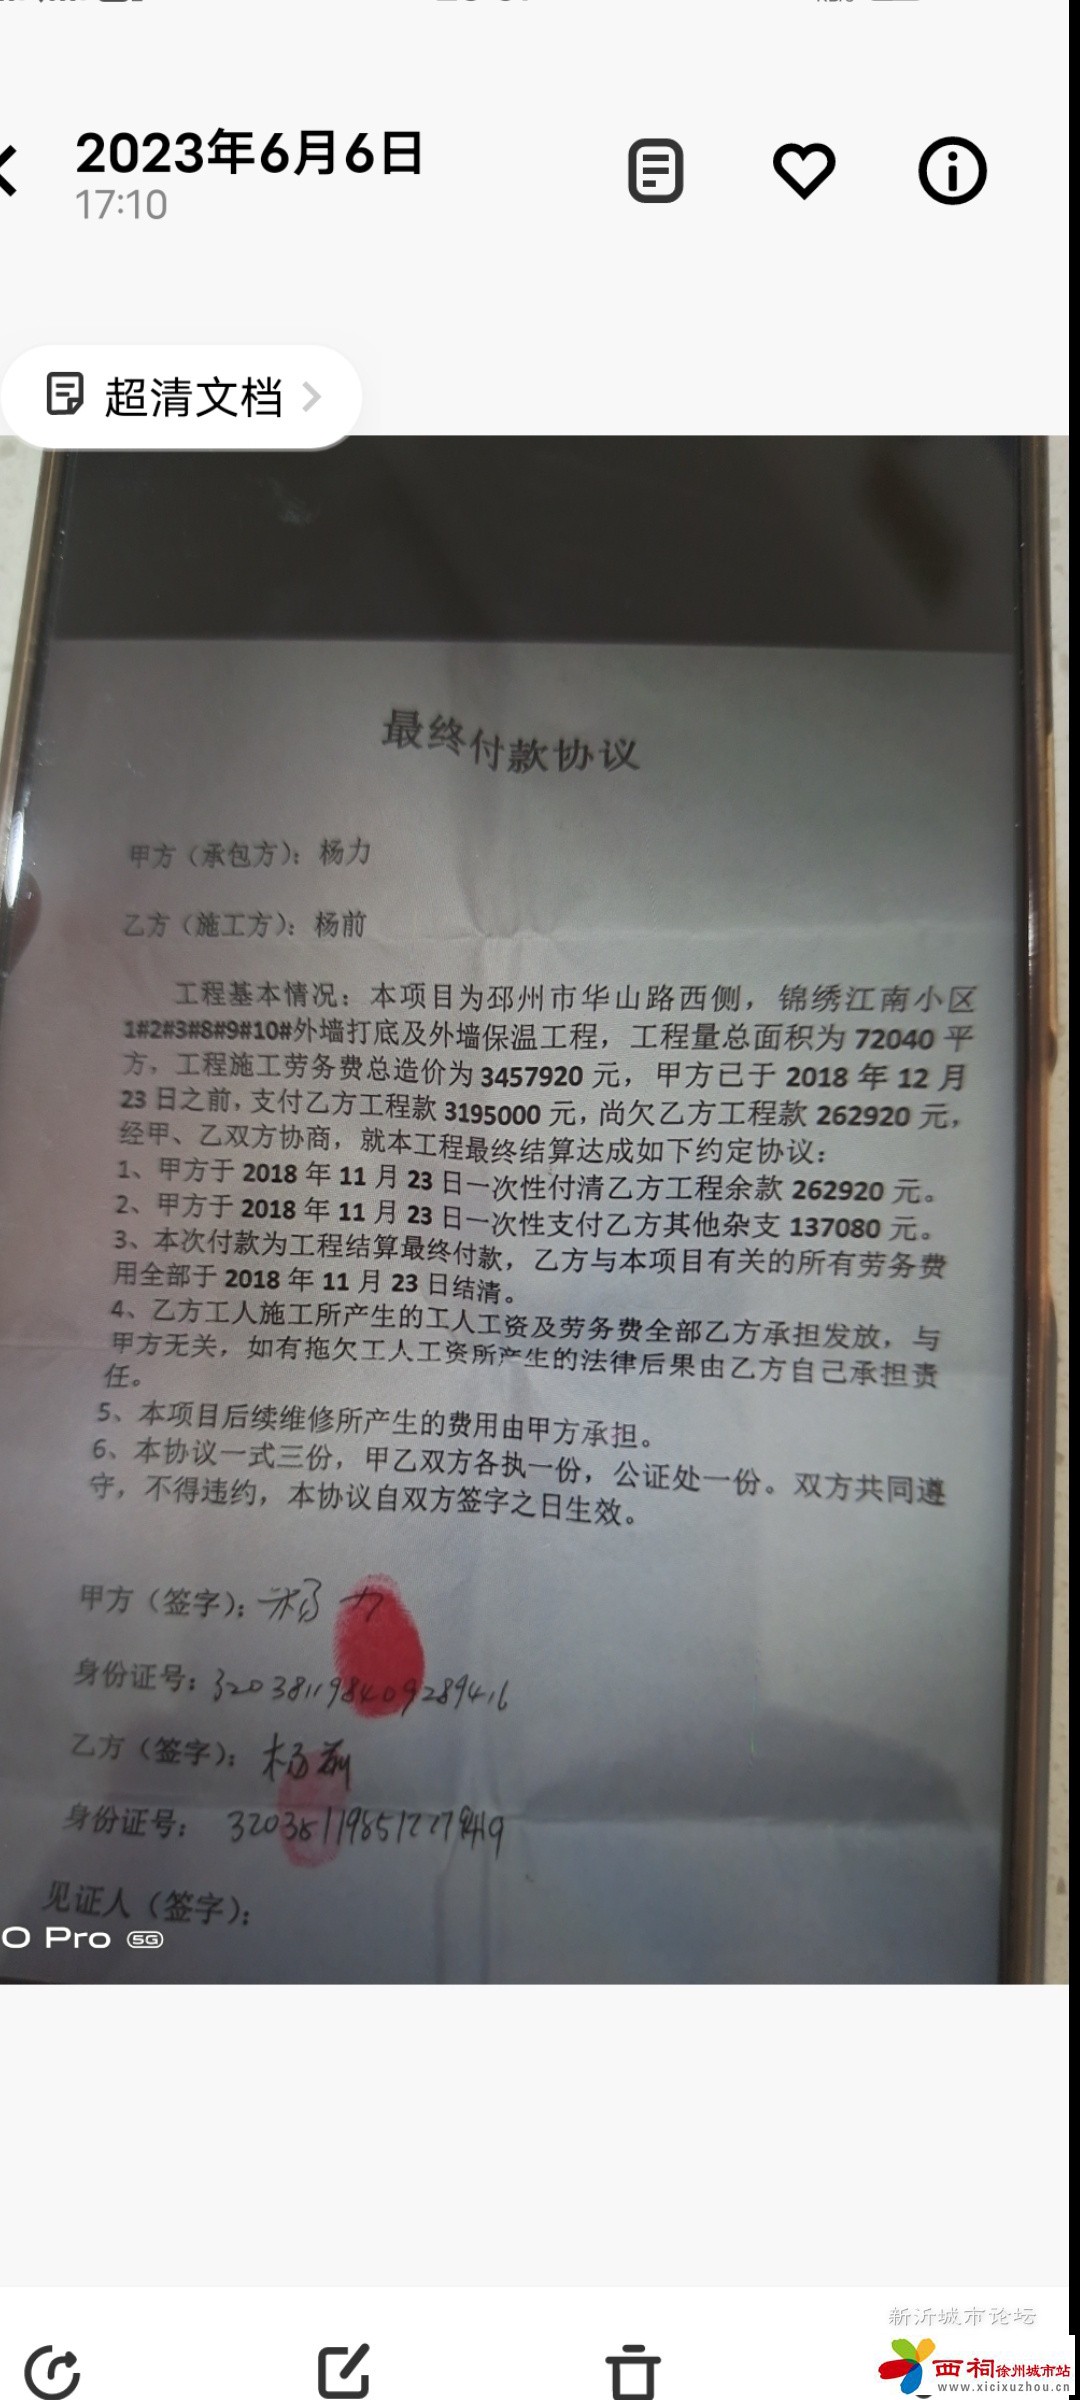 2023年6月6日
17:10
超清文档
最终付款协议
甲方（承包方）：杨力
乙方（施工方）：杨前
工程基本情况：本项目为邳州市华山路西侧，锦绣江南小区
1#2#3#8#9#10#外墙打底及外墙保温工程，工程量总面积为 72040 平
方，工程施工劳务费总造价为 3457920 元，甲方已于 2018 年 12 月
23 日之前，支付乙方工程款 3195000 元，尚欠乙方工程款 262920 元，
经甲、乙双方协商，就本工程最终结算达成如下约定协议：
1、甲方于 2018 年 11 月 23 日一次性付清乙方工程余款 262920 元。
2、甲方于 2018 年 11 月 23 日一次性支付乙方其他杂支 137080 元。
3、本次付款为工程结算最终付款，乙方与本项目有关的所有劳务费
用全部于 2018 年 11 月 23 日结清。
4、乙方工人施工所产生的工人工资及劳务费全部乙方承担发放，与
甲方无关，如有拖欠工人工资所产生的法律后果由乙方自己承担责
任。
5、本项目后续维修所产生的费用由甲方承担。
6、本协议一式三份，甲乙双方各执一份，公证处一份。双方共同遵
守，不得违约，本协议自双方签字之日生效。
甲方（签字）：杨力
身份证号：320381198409289416
乙方（签字）：杨前
身份证号：
见证人（签字）：
O Pro 5G
新沂城市论坛
西祠徐州城市站
www.xicixuzhou.cn